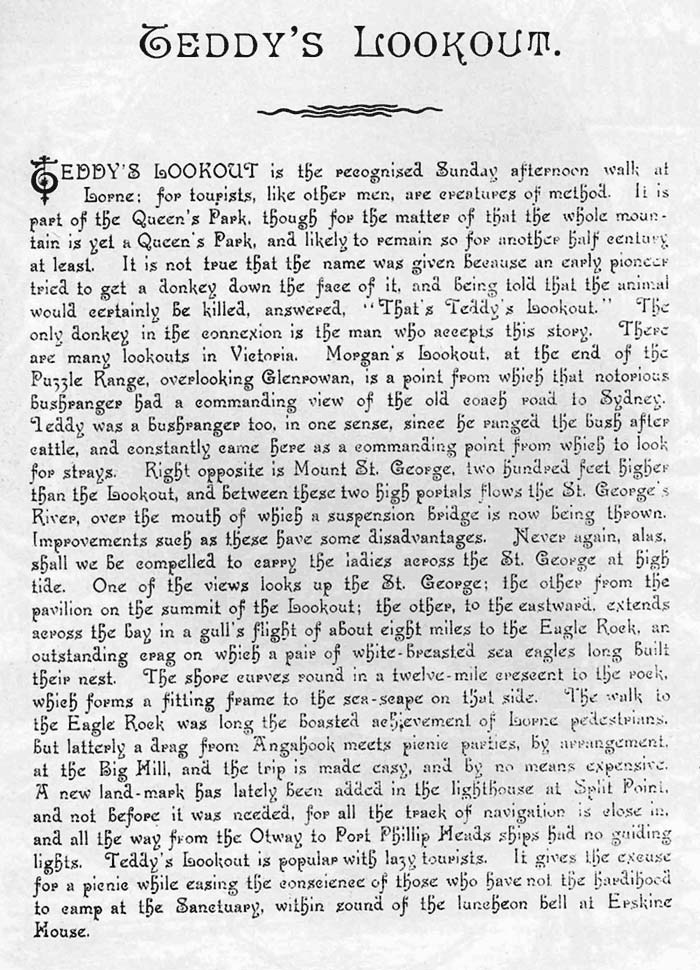 TEDDY'S LOOKOUT.
TEDDY'S LOOKOUT is the recognised Sunday afternoon walk at
Lorne; for tourists, like other men, are creatures of method. It is
part of the Queen's Park, though for the matter of that the whole moun-
tain is yet a Queen's Park, and likely to remain so for another half century
at least. It is not true that the name was given because an early pioneer
tried to get a donkey down the face of it, and being told that the animal
would certainly be killed, answered, "That's Teddy's Lookout." The
only donkey in the connexion is the man who accepts this story. There
are many lookouts in Victoria. Morgan's Lookout, at the end of the
Puzzle Range, overlooking Glenrowan, is a point from which that notorious
bushranger had a commanding view of the old coach road to Sydney.
Teddy was a bushranger too, in one sense, since he ranged the bush after
cattle, and constantly came here as a commanding point from which to look
for strays. Right opposite is Mount St. George, two hundred feet higher
than the Lookout, and between these two high portals flows the St. George's
River, over the mouth of which a suspension bridge is now being thrown.
Improvements such as these have some disadvantages. Never again, alas,
shall we be compelled to carry the ladies across the St. George at high
tide. One of the views looks up the St. George; the other from the
pavilion on the summit of the Lookout; the other, to the eastward, extends
across the bay in a gull's flight of about eight miles to the Eagle Rock, an
outstanding crag on which a pair of white-breasted sea eagles long built
their nest. The shore curves round in a twelve-mile crescent to the rock,
which forms a fitting frame to the sea-scape on that side. The walk to
the Eagle Rock was long the boasted achievement of Lorne pedestrians,
but latterly a drag from Angahook meets picnic parties, by arrangement,
at the Big Hill, and the trip is made easy, and by no means expensive.
A new land-mark has lately been added in the lighthouse at Split Point,
and not before it was needed, for all the track of navigation is close in,
and all the way from the Otway to Port Phillip Heads ships had no guiding
lights. Teddy's Lookout is popular with lazy tourists. It gives the excuse
for a picnic while easing the conscience of those who have not the hardihood
to camp at the Sanctuary, within sound of the luncheon bell at Erskine
House.